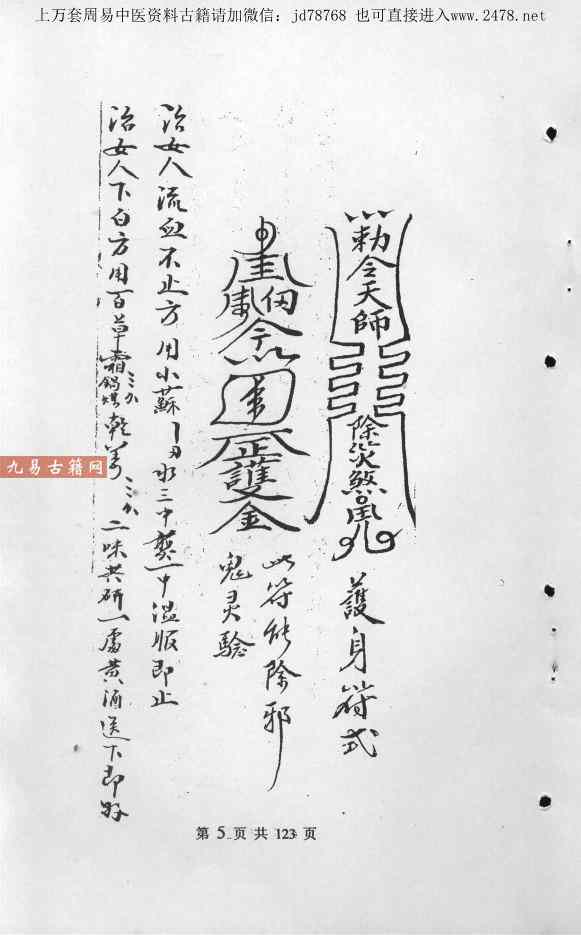 上万套周易中医资料古籍请加微信：jd78768 也可直接进入www.2478.net
勅令天師
除災煞鬼
護身符式
護金
此符能除邪
鬼灵驗
治女人流血不止方用小蘇 水三中煎一中溫服即止
治女人下白方用百草霜鍋煤 乾姜 二味共研一處黄酒送下即好
九易古籍网
第 5 页 共 123 页